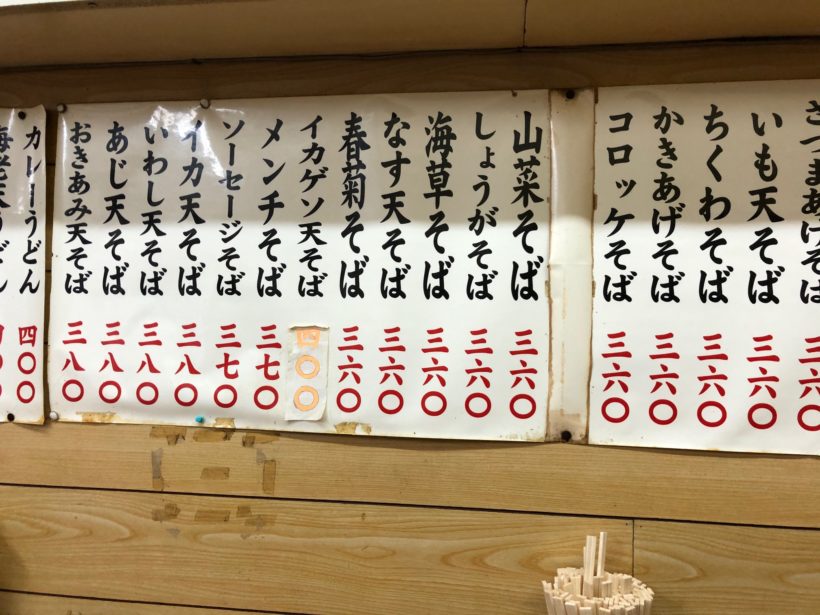 さつまあげそば 三六〇
いも天そば 三六〇
ちくわそば 三六〇
かきあげそば 三六〇
コロッケそば 三六〇
山菜そば 三六〇
しょうがそば 三六〇
海草そば 三六〇
なす天そば 三六〇
春菊そば 三六〇
イカゲソ天そば 四〇〇
メンチそば 三七〇
ソーセージそば 三七〇
イカ天そば 三八〇
いわし天そば 三八〇
あじ天そば 三八〇
おきあみ天そば 三八〇
カレーうどん 四〇〇
海老天うどん 四〇〇